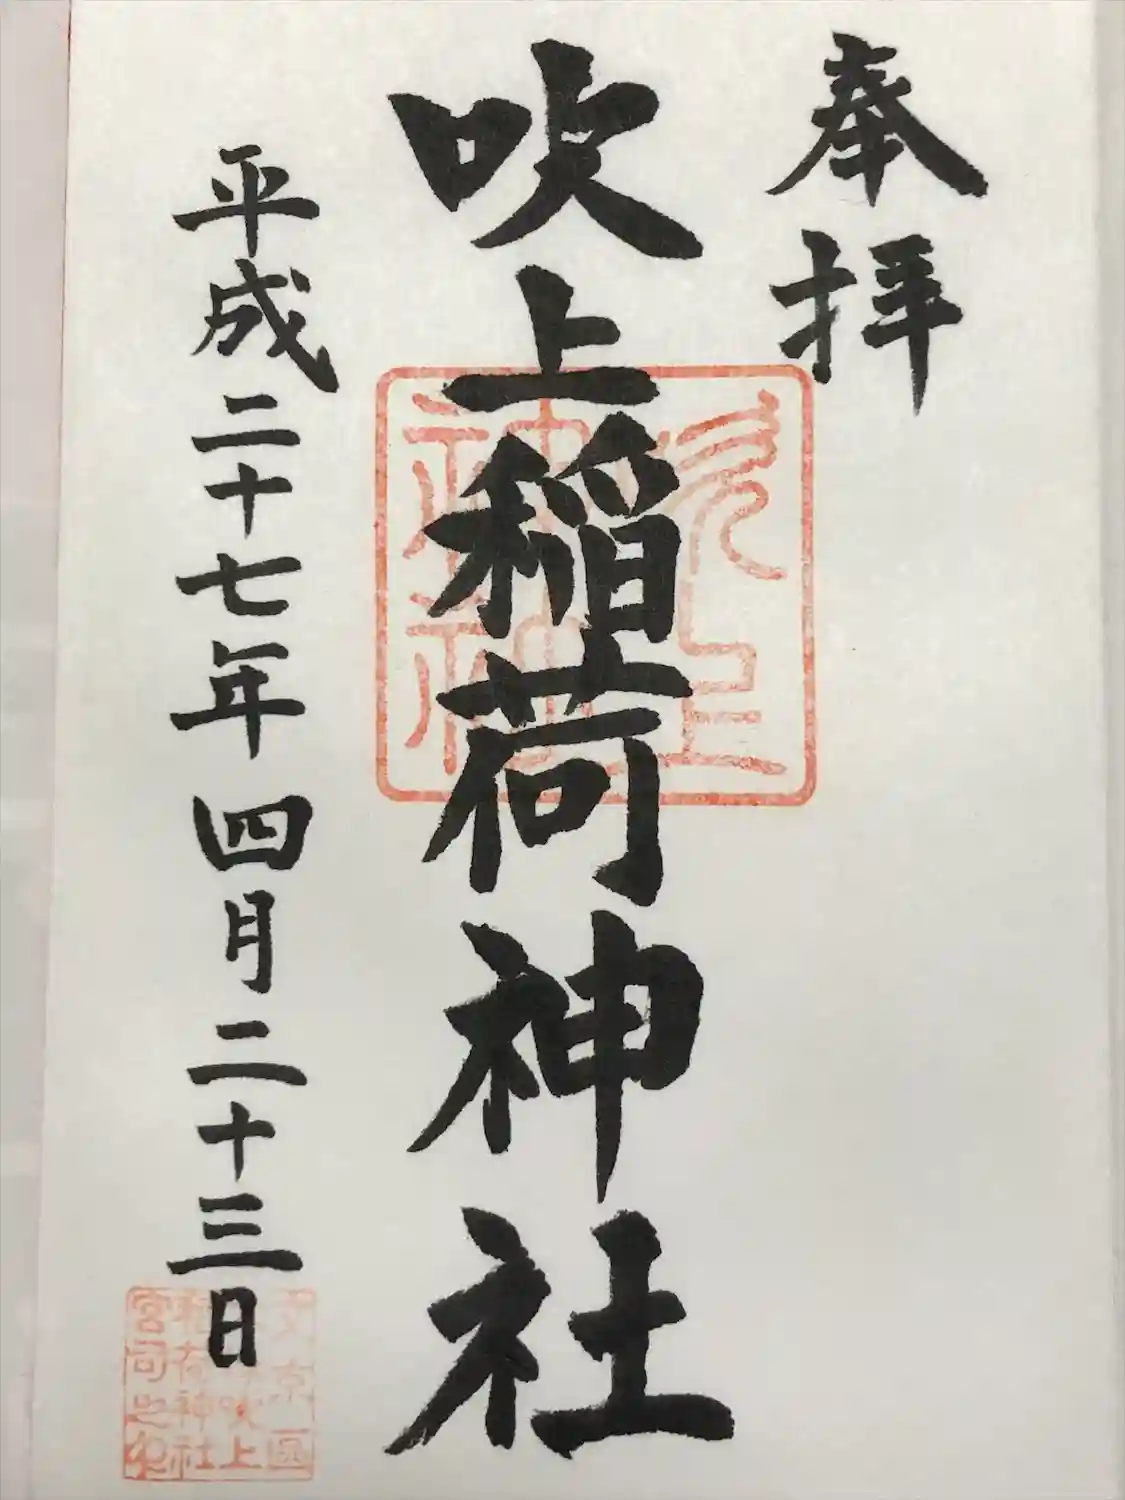 奉拝
吹上稲荷神社
平成二十七年四月二十三日
吹上
神社
文京區
吹上
稲荷神社
宮司之印